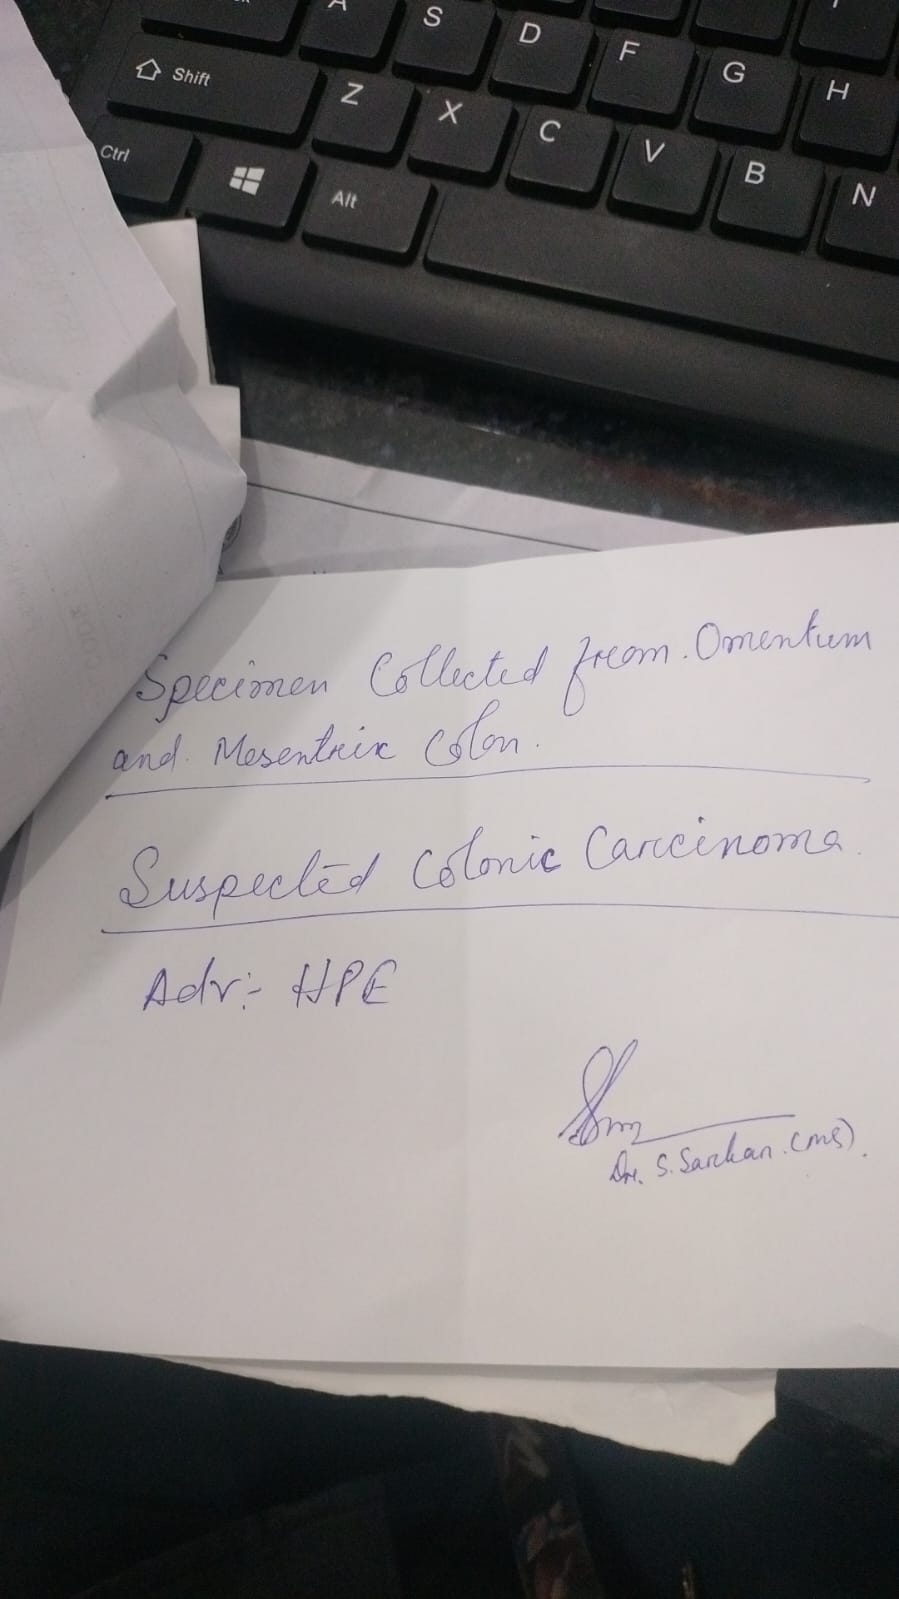 A
S
D
F
G
H
Shift
Z
X
C
V
B
N
Ctrl
Alt
Specimen Collected from. Omentum
and. Mesentrix Colon.
Suspected Colonic Carcinoma.
Adv:- HPE
Dr. S. Sarkar. (MS).